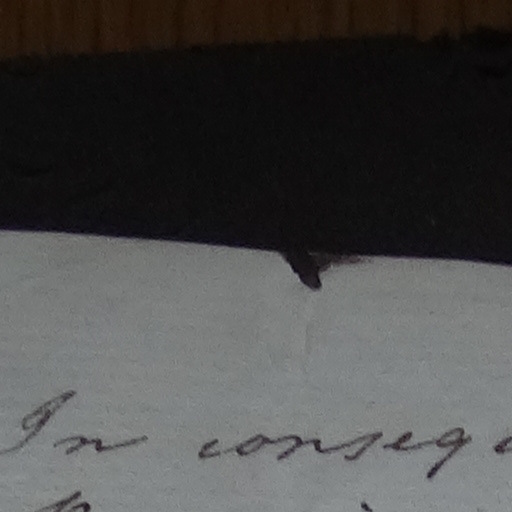 In conseq